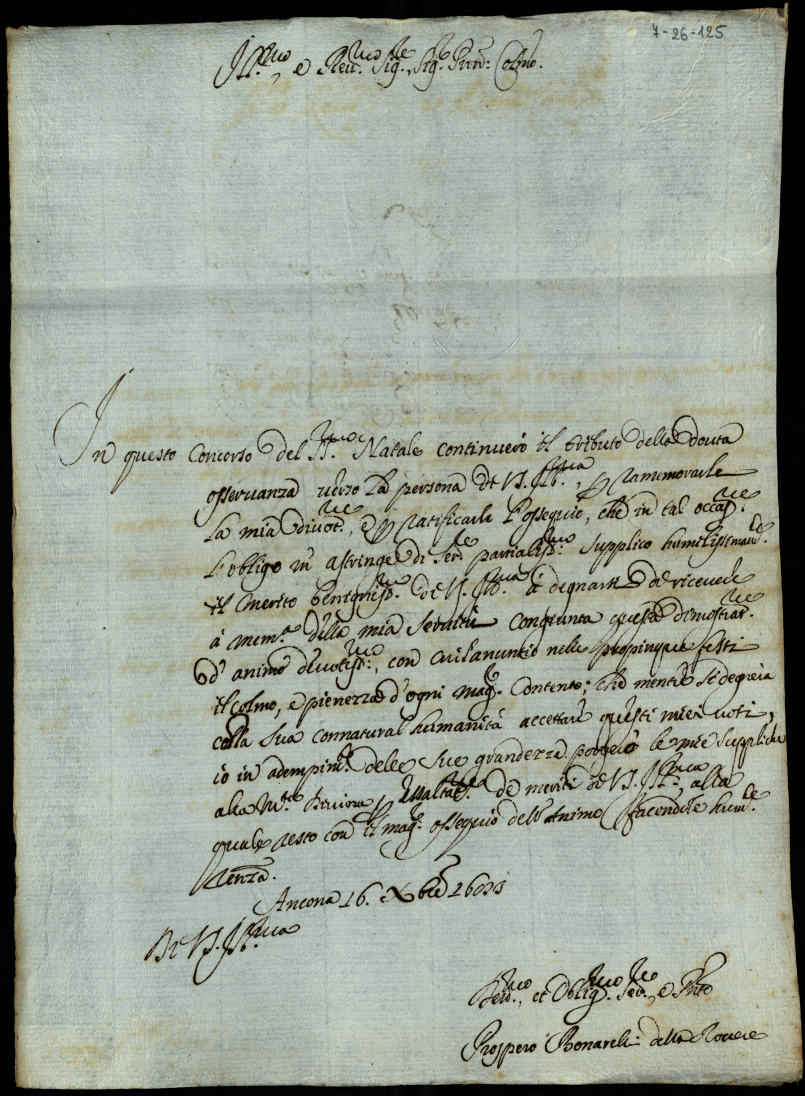 7-26-125
Ill.mo, e Rev.mo Sig.re, Sig.re Pron: Colmo.
In questo Concorso del SS.mo Natale continuerò il tributo della dovuta
osservanza verso la persona di V.S. Ill.ma, p ramemorarle
la mia divot.ne, e p ratificarle l'ossequio, che in tal occas.ne
l'obligo m'astringe di Ser.re partialiss.mo: supplico humilissimam.te
il merito benigniss.mo di V.S. Ill.ma à degnarsi di ricevere
à mem.a della mia servitù congiunta questa dimostrat.ne
d'animo devotiss.mo: con cui l'anuntio nelle propinque festi
il colmo, e pienezza d'ogni mag.r Contento; che mentre si degnerà
colla sua connatural humanità accettare questi miei voti,
io in adempim.to delle sue grandezze porgerò le mie suppliche
alla M.tà Divina p l'essaltat.ne de meriti di V.S. Ill.ma, alla
quale resto con il mag.r ossequio dell'Animo facendole hum.le
renza.
Ancona 16. Xbre
Di V.S. Ill.ma
Dev.mo, et Oblig.mo Ser.re, e
Prospero Bonareli: della Rovere